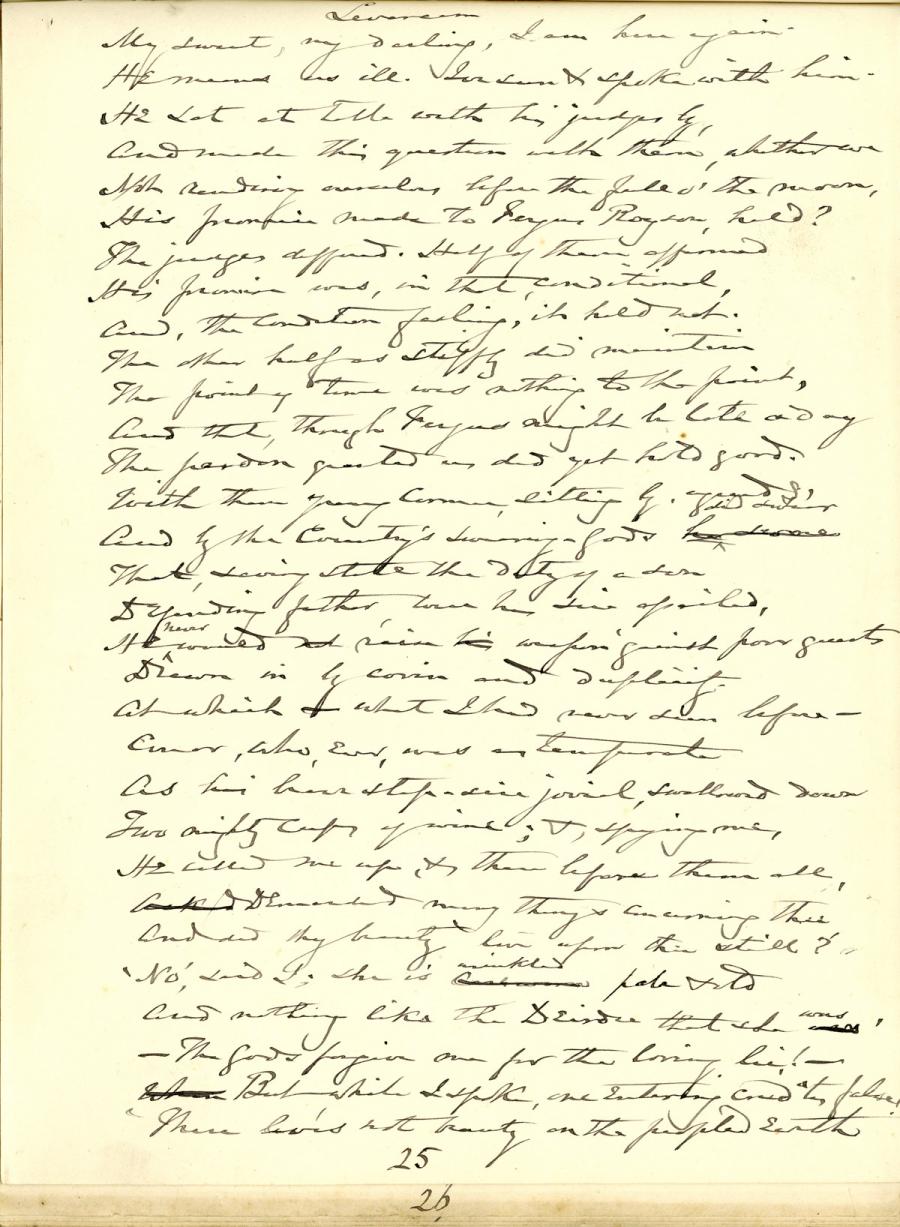 Levarcam
My sweet, my darling, I am here again.
He means us ill. I've seen & spoke with him.
He sat at table with his judges by,
And made this question with them, whether we
Not rendering ourselves before the full o' the moon,
His promise made to Fergus Royson, held?
The judges differed. Half of them affirmed
His promise was, in that, conditional,
And, the condition failing, it held not.
The other half as stiffly did maintain
The point of time was nothing to the point,
And that, though Fergus might be late a day
The pardon granted us did yet hold good.
With them young Cormac, sitting by, agreed,
And by the Country's swearing-gods he swore did swear
That, saving still the duty of a son
Defending father were his sire assailed,
He never would not raise his weapon 'gainst poor guests
Drawn in by covin and duplicity.
At which & what I had never seen before —
Conor, who, ever, was as temperate
As his step-sire jovial, swallowed down
Two mighty cups of wine; &, spying me,
He called me up, & there before them all,
Ask'd Demanded many things concerning thee
And did thy beauty live upon thee still?
'No', said I; she is wrinkled pale & old
And nothing like the Deirdre that she was was,
— The gods forgive me for the loving lie! —
When But while I spoke, one entering cried "tis false!
"There lives not beauty on the peopled Earth
25
26